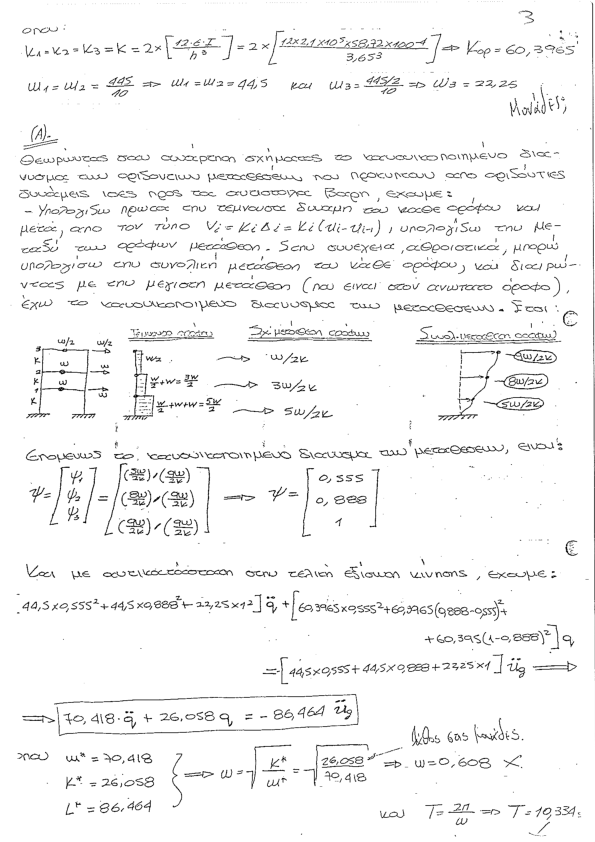 3
οπου:
K1=K2=K3=K=2×[12·E·I/h³]=2×[12×2,1×10⁵×58,72×10⁻⁴/3,65³] ⟹ Kορ=60,3965
m1=m2=445/10 ⟹ m1=m2=44,5 και m3=(445/2)/10 ⟹ m3=22,25
Μονάδες;
(A)-
Θεωρώντας σαν συνάρτηση σχήματος το κανονικοποιημένο διά-
νυσμα των οριζοντίων μεταθέσεων που προκύπτουν απο οριζόντιες
δυνάμεις ίσες προς τα αντίστοιχα βάρη, εχουμε:
- Υπολογίζω πρώτα την τέμνουσα δύναμη του κάθε ορόφου και
μετά, απο τον τύπο Vi=KiΔi=Ki(ui-ui-1), υπολογίζω την με-
ταξύ των ορόφων μετάθεση. Στην συνέχεια, αθροιστικά, μπορώ
υπολογίσω την συνολική μετάθεση του κάθε ορόφου, και διαιρών-
ντας με την μέγιστη μετάθεση (που είναι στον ανώτατο όροφο),
έχω το κανονικοποιημένο διάνυσμα των μεταθέσεων. Έτσι:
Τέμνουσα ορόφου Σχ. μετάθεση ορόφων Συνολ. μετάθεση ορόφων
3 w/2 w/2 w/2 → w/2K 9w/2K
K 2 w w w/2+w=3w/2 → 3w/2K 8w/2K
K 1 w w w/2+w+w=5w/2 → 5w/2K 5w/2K
K
Επομένως το κανονικοποιημένο διάνυσμα των μεταθέσεων, είναι:
Ψ=[Ψ1 Ψ2 Ψ3]=[(5w/2K)/(9w/2K) (8w/2K)/(9w/2K) (9w/2K)/(9w/2K)] ⟹ Ψ=[0,555 0,888 1]
Και με αντικατάσταση στην τελική εξίσωση κίνησης, έχουμε:
44,5×0,555²+44,5×0,888²+22,25×1²] q̈ +[60,3965×0,555²+60,3965(0,888-0,555)²+
+60,395(1-0,888)²] q
=-[44,5×0,555+44,5×0,888+22,25×1] üg ⟹
⟹ 70,418·q̈ + 26,058 q = -86,464 üg
λάθος στις μονάδες.
που m*=70,418
K*=26,058
L*=86,464
⟹ ω=√(K*/m*)=√(26,058/70,418) ⟹ ω=0,608 ×.
και T=2π/ω ⟹ T=10,334s